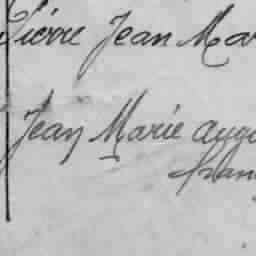 Pierre Jean Mar
Jean Marie augu
fran